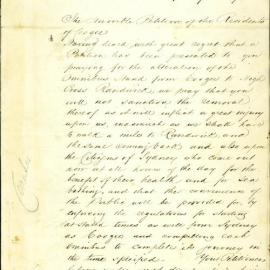 The Humble Petition of the Residents
of Coogee
Having heard with great regret that a
Petition has been presented to you
praying for the alteration of the
Omnibus Stand from Coogee to High
Cross Randwick, we pray that you
will not sanction the removal
thereof as it will inflict a great injury
upon us, inasmuch as we shall have
to walk a mile to Randwick and
the same coming back and also upon
the Citizens of Sydney who come out
here at all hours of the day for the
benefit of their health and for Sea
bathing, and that the convenience of
the Public will be provided for by
enforcing the regulations for starting
at stated times as well from Sydney
as Coogee and compelling each
Omnibus to complete its journey in
the time specified. Your Petitioners